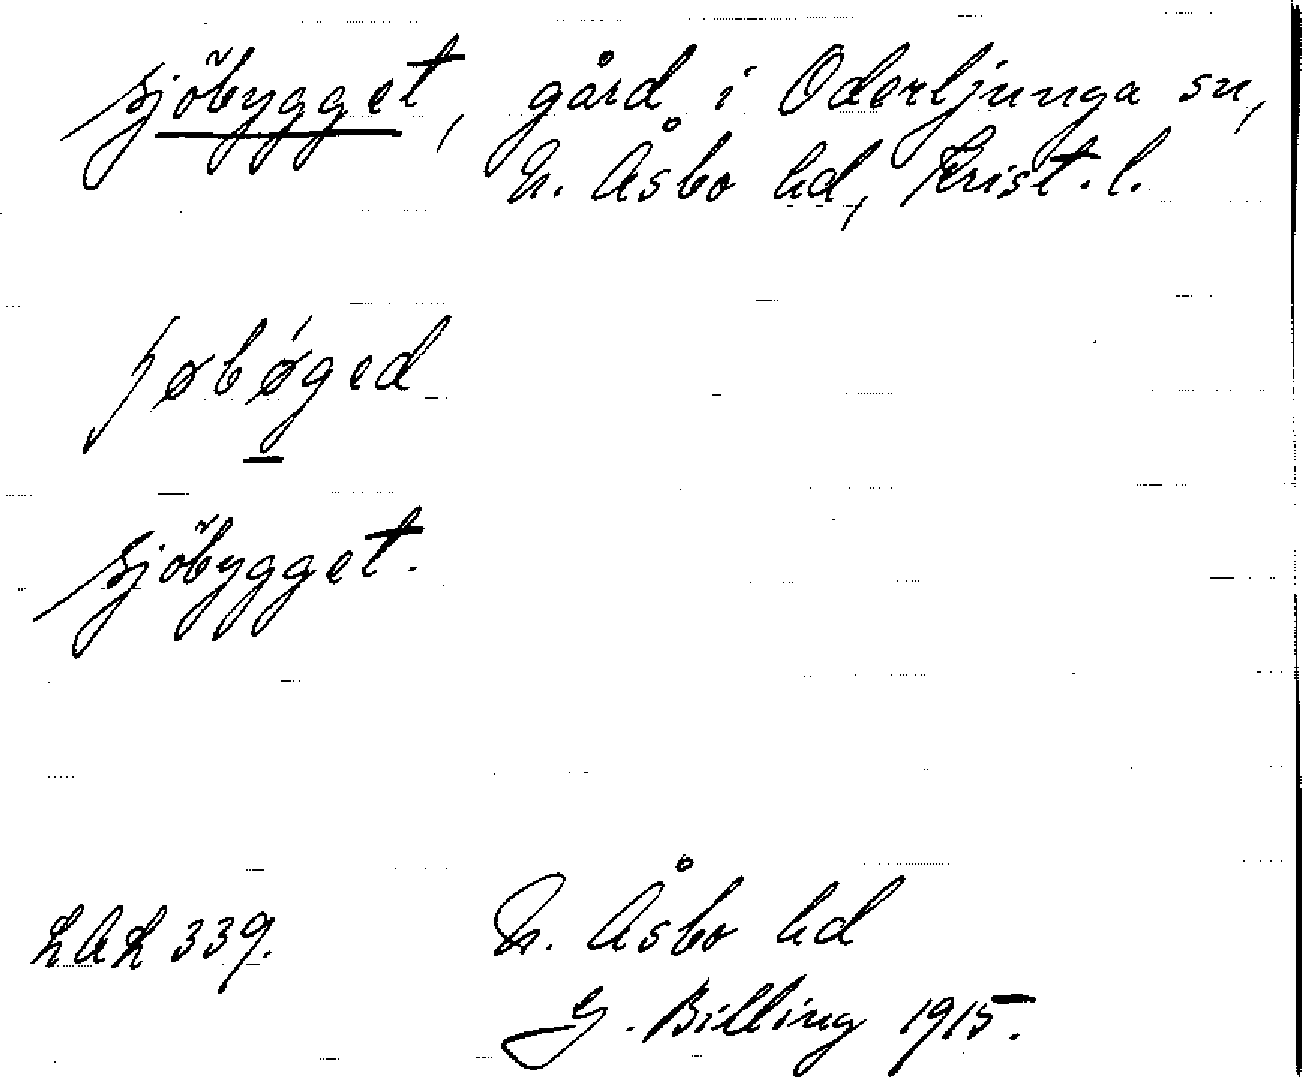 Sjöbygget, gård i Oderljunga sn,
N. Åsbo hd, Krist. l.
ʃøbǿged
Sjöbygget.
LAL 339.
N. Åsbo hd
G. Billing 1915.